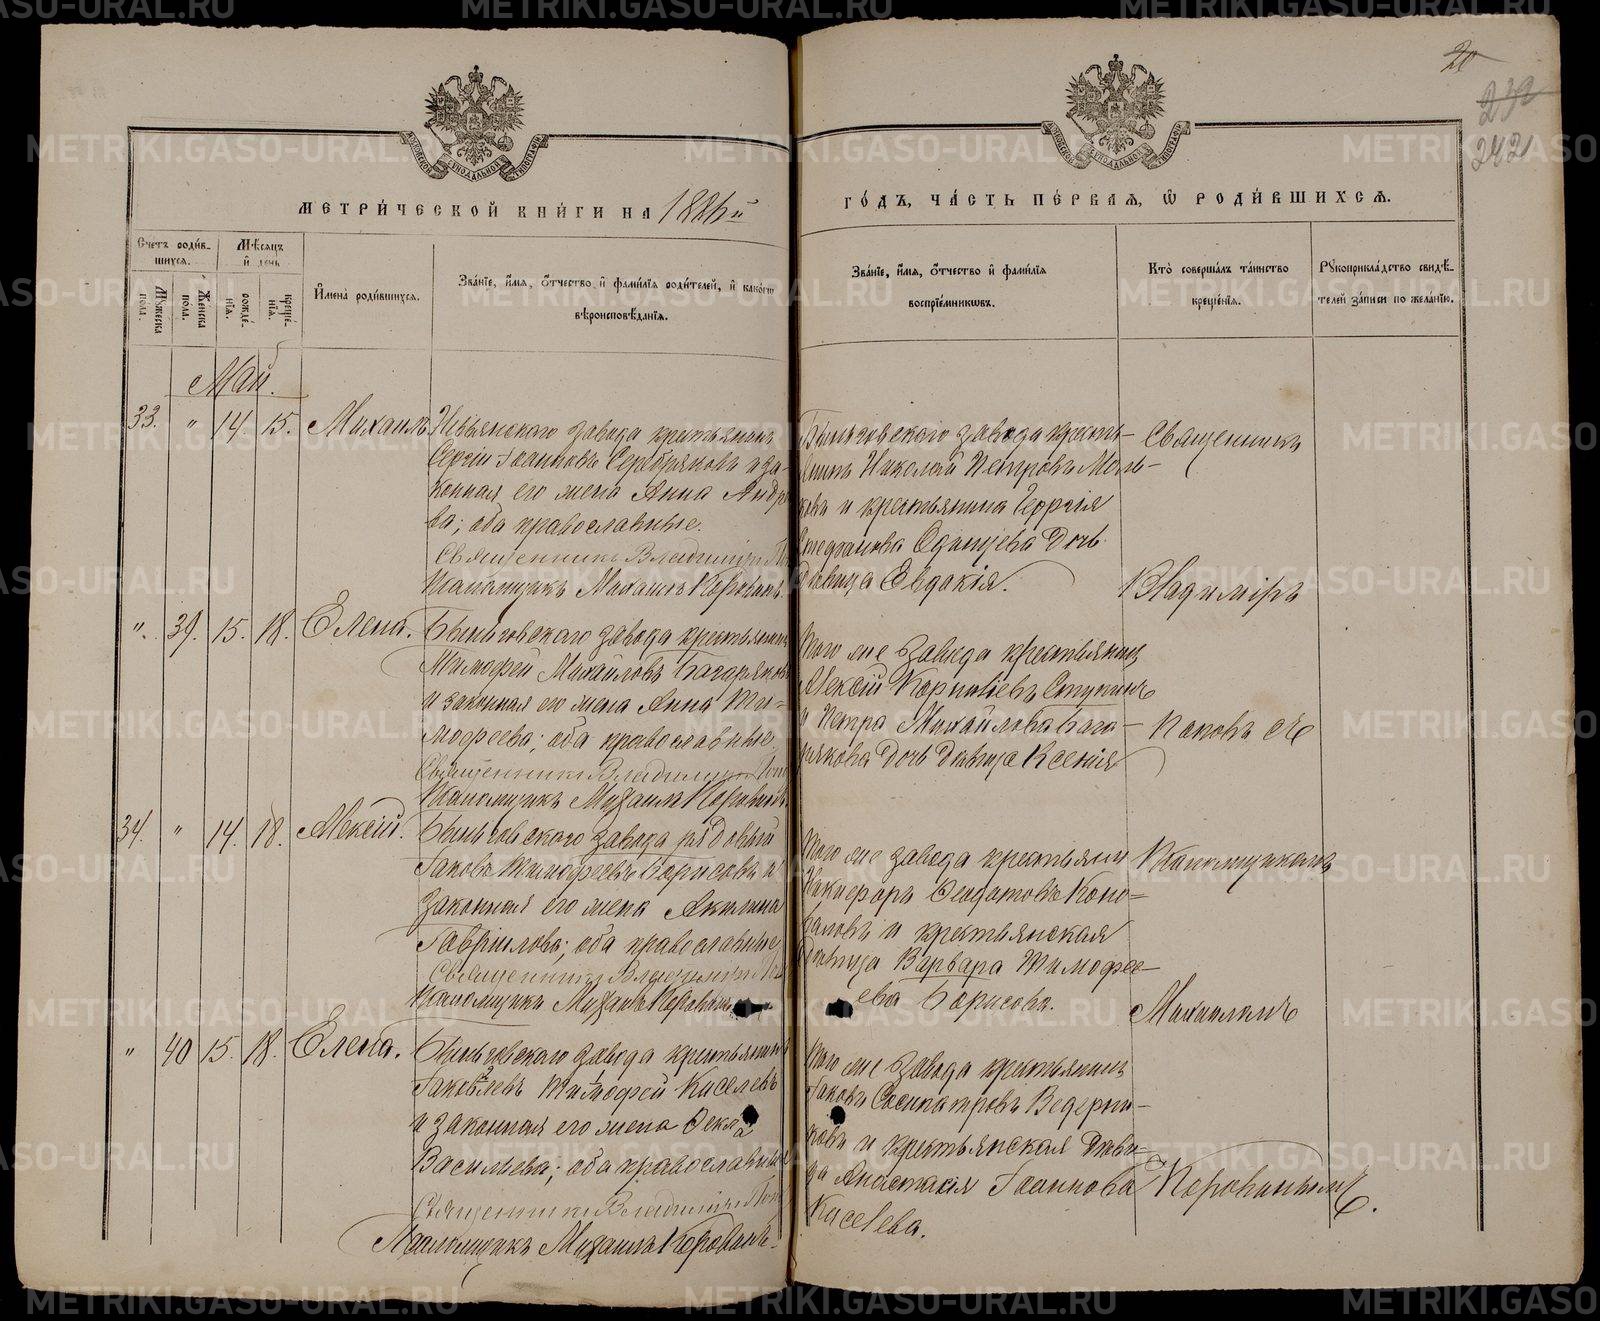 20
232
242
МЕТРИ́ЧЕСКОЙ КНИ́ГИ НА 1886й
ГО́ДЪ, ЧА́СТЬ ПЕ́РВАЯ, Ѽ РОДИ́ВШИХСЯ.
Счетъ роди́в-
шихся.
Мѣсяцъ
и҆ де́нь
Мꙋжеска
пола.
Женска
пола.
рожде́-
нїя.
креще́-
нїя.
И҆мена̀ роди́вшихся.
Зва́нїе, и҆́мя, о҆́тчество, и҆ фами́лїя роди́телей, и҆ како́гѡ
вѣроисповѣ́данїя.
Зва́нїе, и҆́мя, о҆́тчество и҆ фами́лїя
воспрїе́мникѡвъ.
Кто̀ соверша́лъ та́инство
креще́нїя.
Рꙋкоприкла́дство свидѣ́-
телей за́писи по жела́нїю.
Май.
33. " 14. 15. Михаилъ
Невьянскаго завода крестьянинъ
Сергiй Iоанновъ Серебряковъ и за-
конная его жена Анна Андре
ва; оба православные.
Священникъ Владимiръ По
Псаломщикъ Михаилъ Корован
Быньговскаго завода кресть-
янинъ Николай Петровъ
и крестьянина Георгiя
Стефанова Одинцева дочь
девица Евдокiя.
Священникъ
Владимiръ
". 39. 15. 18. Елена.
Быньговскаго завода крестьянинъ
Тимофей Михайловъ Багаряковъ
и законная его жена Анна Ти-
мофеева; оба православные
Священникъ Владимiръ Поп
Псаломщикъ Михаилъ Корованъ
Того же завода крестьянинъ
Алексiй Корнилiевъ Ступинъ
и Петра Михайлова Бага-
рякова дочь девица Ксенiя
Поповъ съ
34. " 14. 18. Алексiй.
Быньговскаго завода рядовый
Iаковъ Тимофеевъ Борисовъ и
законная его жена Акилина
Гаврiилова; оба православные
Священникъ Владимiръ По
Псаломщикъ Михаилъ Корованъ
Того же завода крестьяни
Никифоръ Феодотовъ Коно-
валовъ и крестьянская
девица Варвара Тимофе-
ева Борисова.
Псаломщикомъ
Михаиломъ
" 40 15. 18. Елена.
Быньговскаго завода крестьянинъ
Iаковлевъ Тимофей Киселевъ
и законная его жена Фекла
Васильева; оба православные
Священникъ Владимiръ Поп
Псаломщикъ Михаилъ Корованъ.
Того же завода крестьянинъ
Iаковъ Сосипатровъ Ведерни-
ковъ и крестьянская деви-
ца Анастасiя Iоаннова
Киселева.
Корованымъ.
METRIKI.GASO-URAL.RU